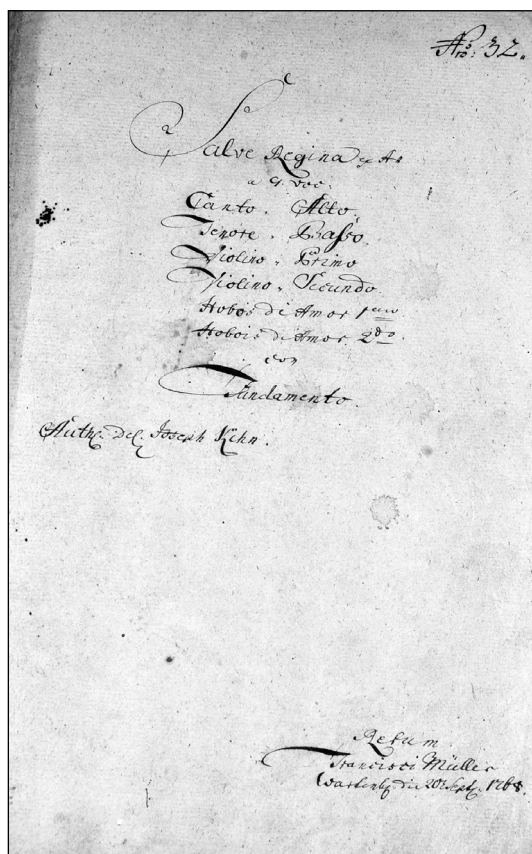 No: 32.
Salve Regina ex A#
a 4. voc:
Canto. Alto.
Tenore. Basso.
Violino. Primo
Violino. Secundo.
Hobois di Amor 1mo
Hobois di Amor. 2do.
con
Fundamento.
Auth. Del. Joseph Kihn.
Rerum
Francisci Müller
Wartenbg. die 20 Sept. 1768.